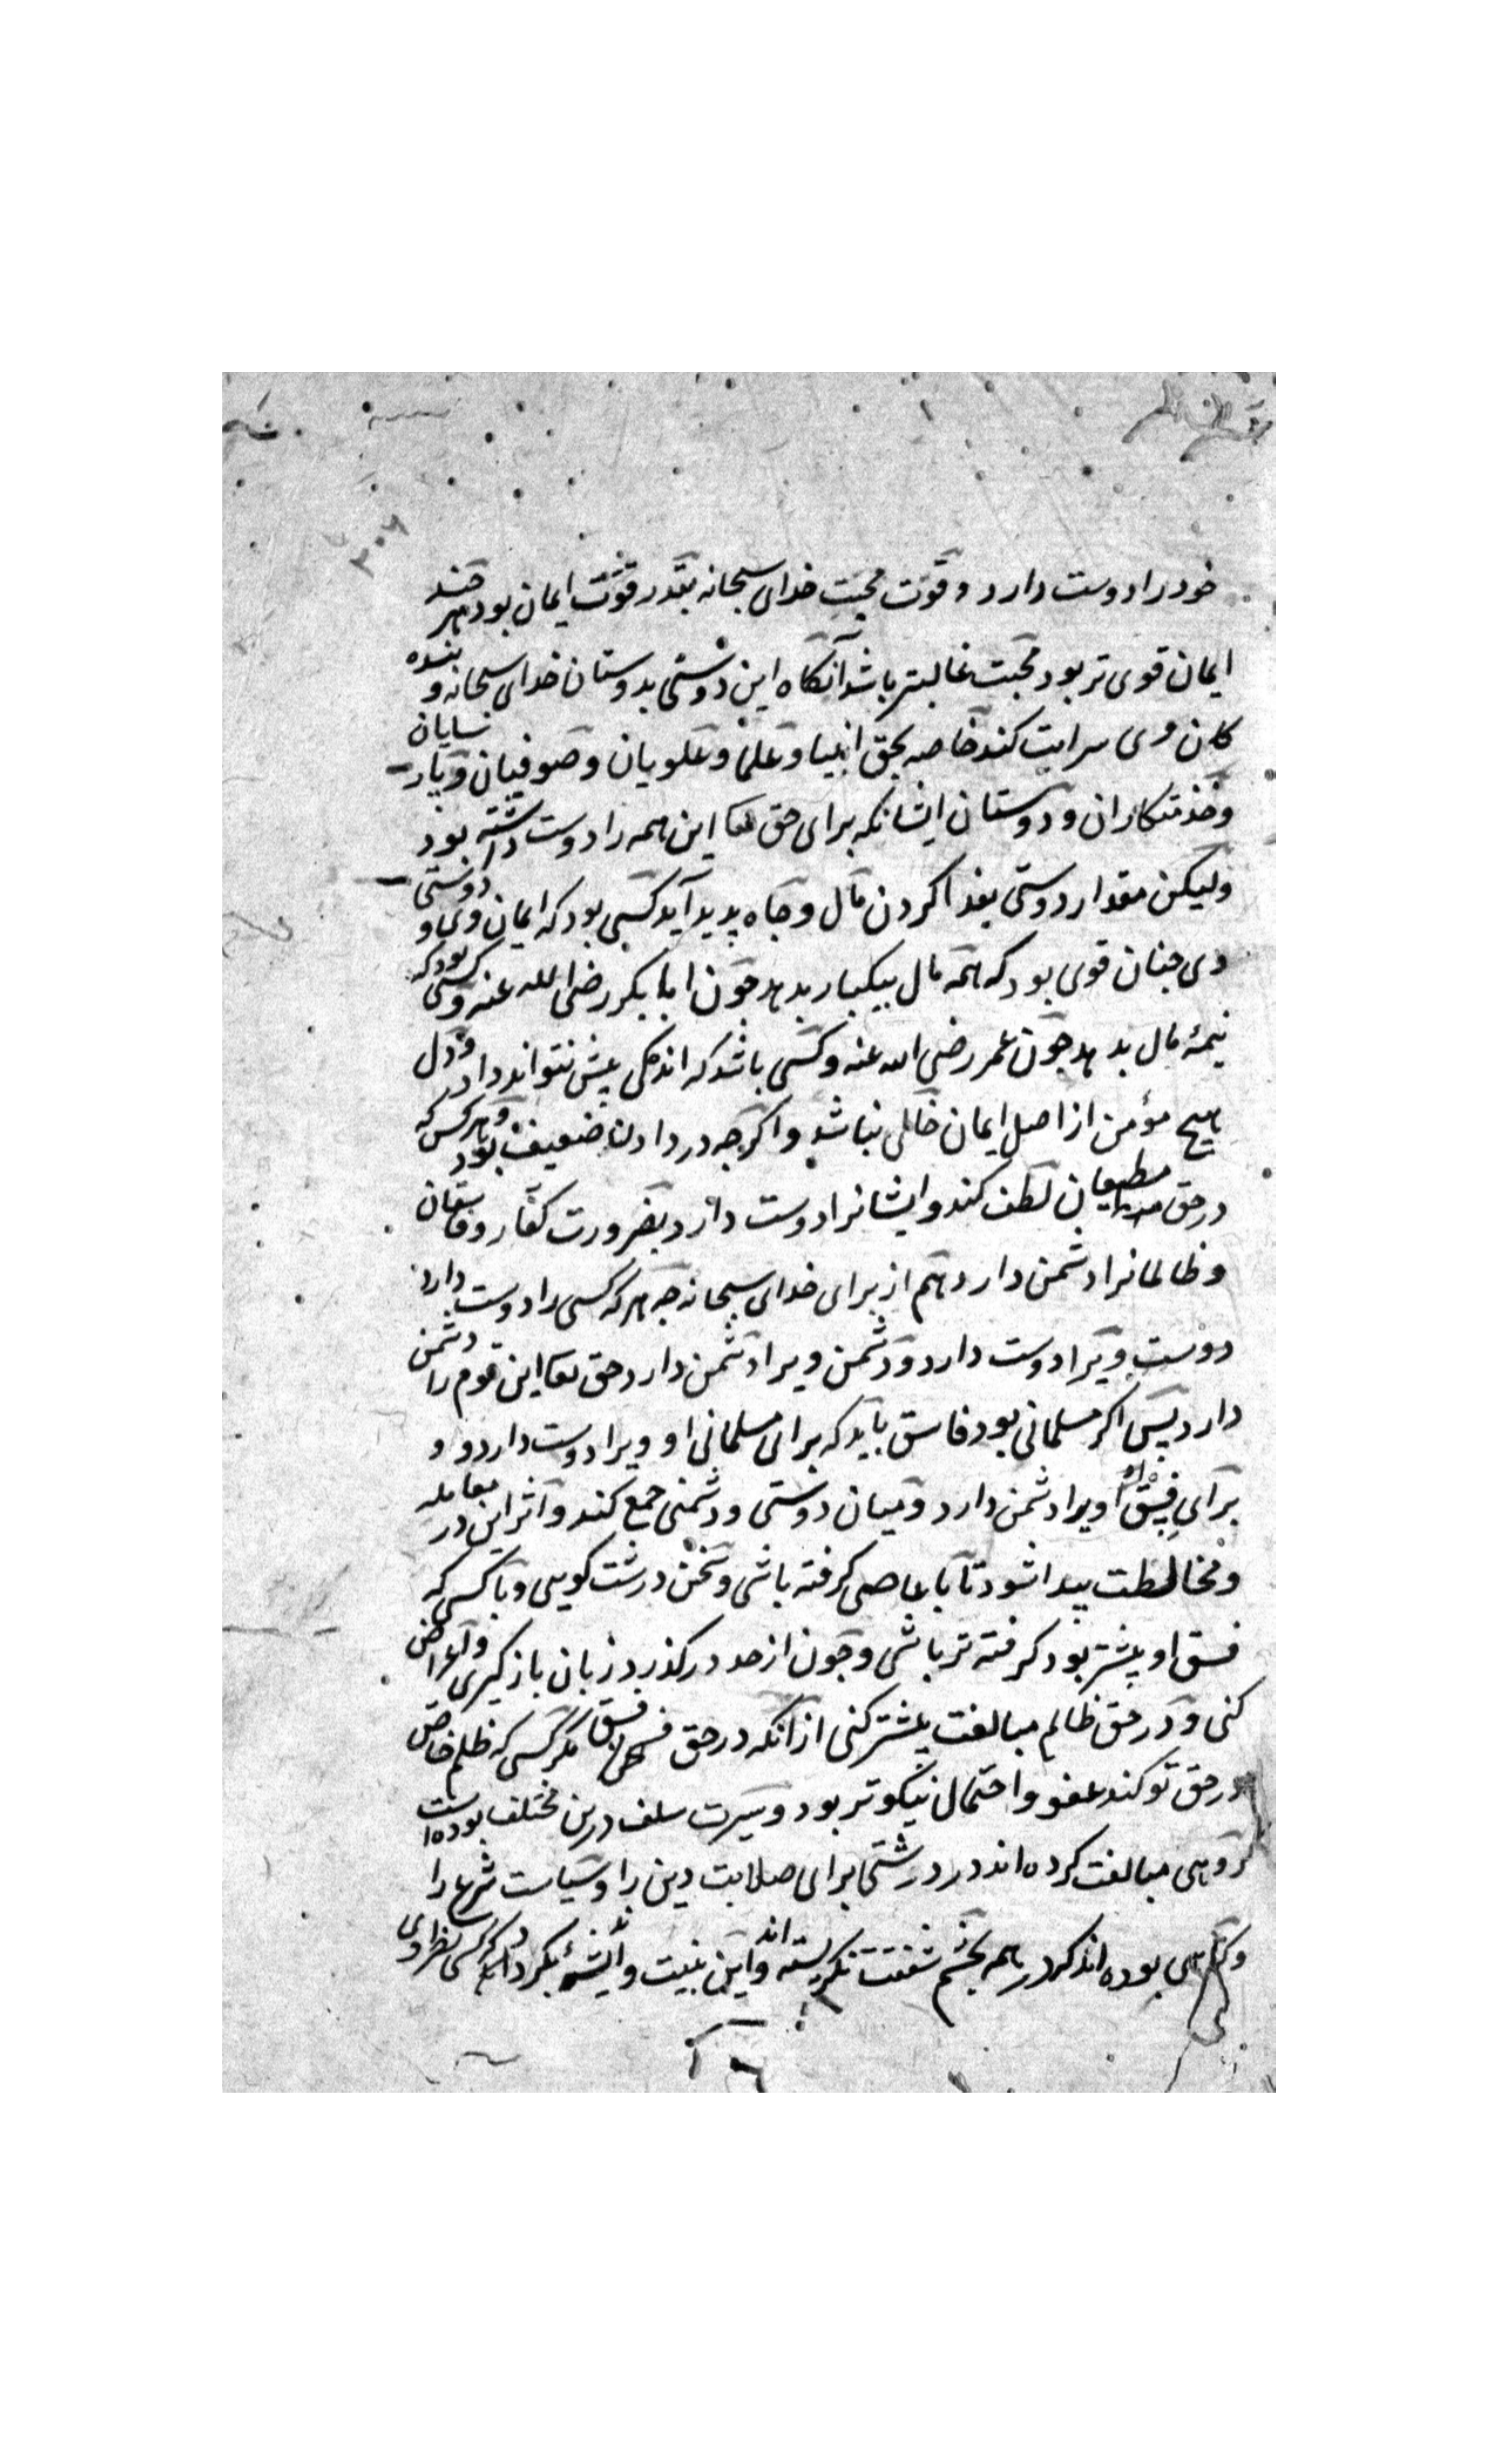 ۳۰۶
خود را دوست دارد و قوت محبت خدای سبحانه بقدر قوت ایمان بود هر چند
ایمان قوی تر بود محبت غالبتر باشد آنکاه این دوستی بدوستان خدای سبحانه و بنده
کان وی سرایت کند خاصه بحق انبیا و علما و علویان و صوفیان و پارسایان
و خدمتکاران و دوستان ایشانکه برای حق تعا این همه را دوست داشته بود
ولیکن مقدار دوستی بفدا کردن مال و جاه پدید آید کسی بود که ایمان وی و دوستی
وی جنان قوی بود که همه مال بیکبار بدهد جون ابابکر رضی الله عنه و کسی بود که
نیمهٔ مال بدهد جون عمر رضی الله عنه و کسی باشد که اندکی بیش نتواند داد و دل
هیج مؤمن از اصل ایمان خالی نباشد واکرجه در دادن ضعیف بود و هر کس که
در حق مطیعان لطف کند و ایشانرا دوست دارد بضرورت کفار و فاسقان
و ظالمانرا دشمن دارد هم از برای خدای سبحانه جه هر که کسی را دوست دارد
دوست ویرا دوست دارد و دشمن ویرا دشمن دارد حق تعا این قوم را دشمن
دارد پس اکر مسلمانی بود فاسق باید که برای مسلمانی او ویرا دوست دارد و و
برای فسق او ویرا دشمن دارد و میان دوستی و دشمنی جمع کند و اثر این در معامله
و مخالطت پیدا شود تا با عاصی کرفته باشی و سخن درشت کویی و با کسی که
فسق او بیشتر بود کرفته تر باشی و جون از حد درکذرد زبان بازکیری و اعراض
کنی و در حق ظالم مبالغت بیشتر کنی از آنکه در حق فسق مکر کسی که ظلم خاص
در حق تو کند عفو و احتمال نیکوتر بود و سیرت سلف درین مختلف بوده است
کروهی مبالغت کرده اند در درشتی برای صلابت دین را و سیاست شرع را
و بوده اند که در همه بجشم شفقت نکریسته اند و این بنیت و بکردد کسی نظر وی